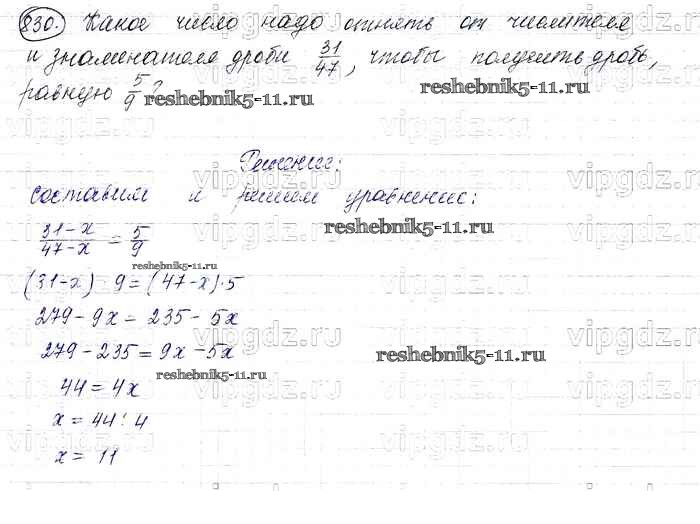 830. Какое число надо отнять от числителя
и знаменателя дроби 31/47, чтобы получить дробь,
равную 5/9?
reshebnik5-11.ru
reshebnik5-11.ru
vipgdz.ru vipgdz.ru vipgdz.ru vipgdz.ru
Решение:
составим и решим уравнение:
reshebnik5-11.ru
(31-x)/(47-x) = 5/9
reshebnik5-11.ru
(31-x) · 9 = (47-x)·5
279-9x = 235-5x
279-235 = 9x-5x
reshebnik5-11.ru
reshebnik5-11.ru
44 = 4x
x = 44 : 4
x = 11